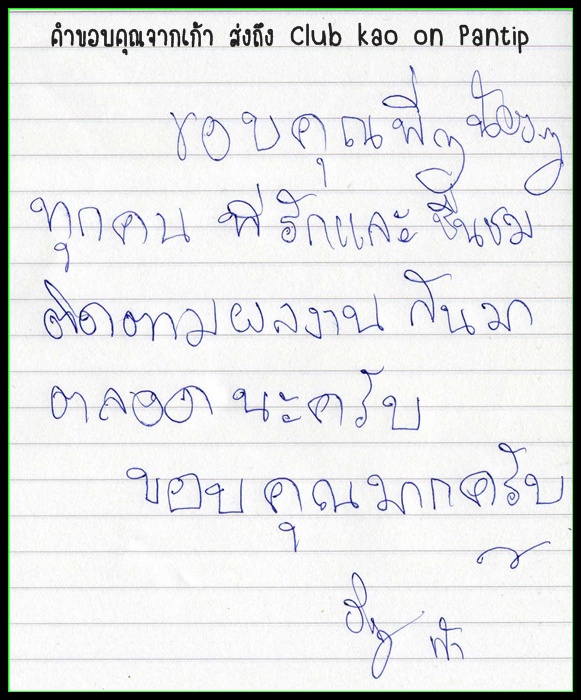 คำขอบคุณจากเก้า ส่งถึง Club kao on Pantip
ขอบคุณพี่ๆ น้องๆ
ทุกคน ที่รักและชื่นชม
ติดตามผลงาน กันมา
ตลอด นะครับ
ขอบคุณมากครับ